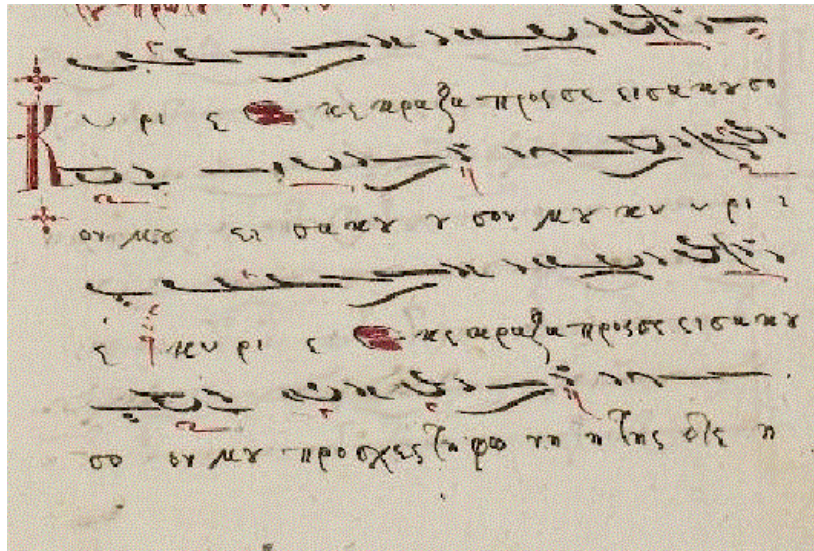 Κυ ρι ε κε κραξα προς σε εισακουσο
ον μου εισακου ου σον μου κυ υ ρι ι
ε κυ ρι ε κε κραξα προς σε εισακου
σο ον μου προσχες τη φω νη η της δε η